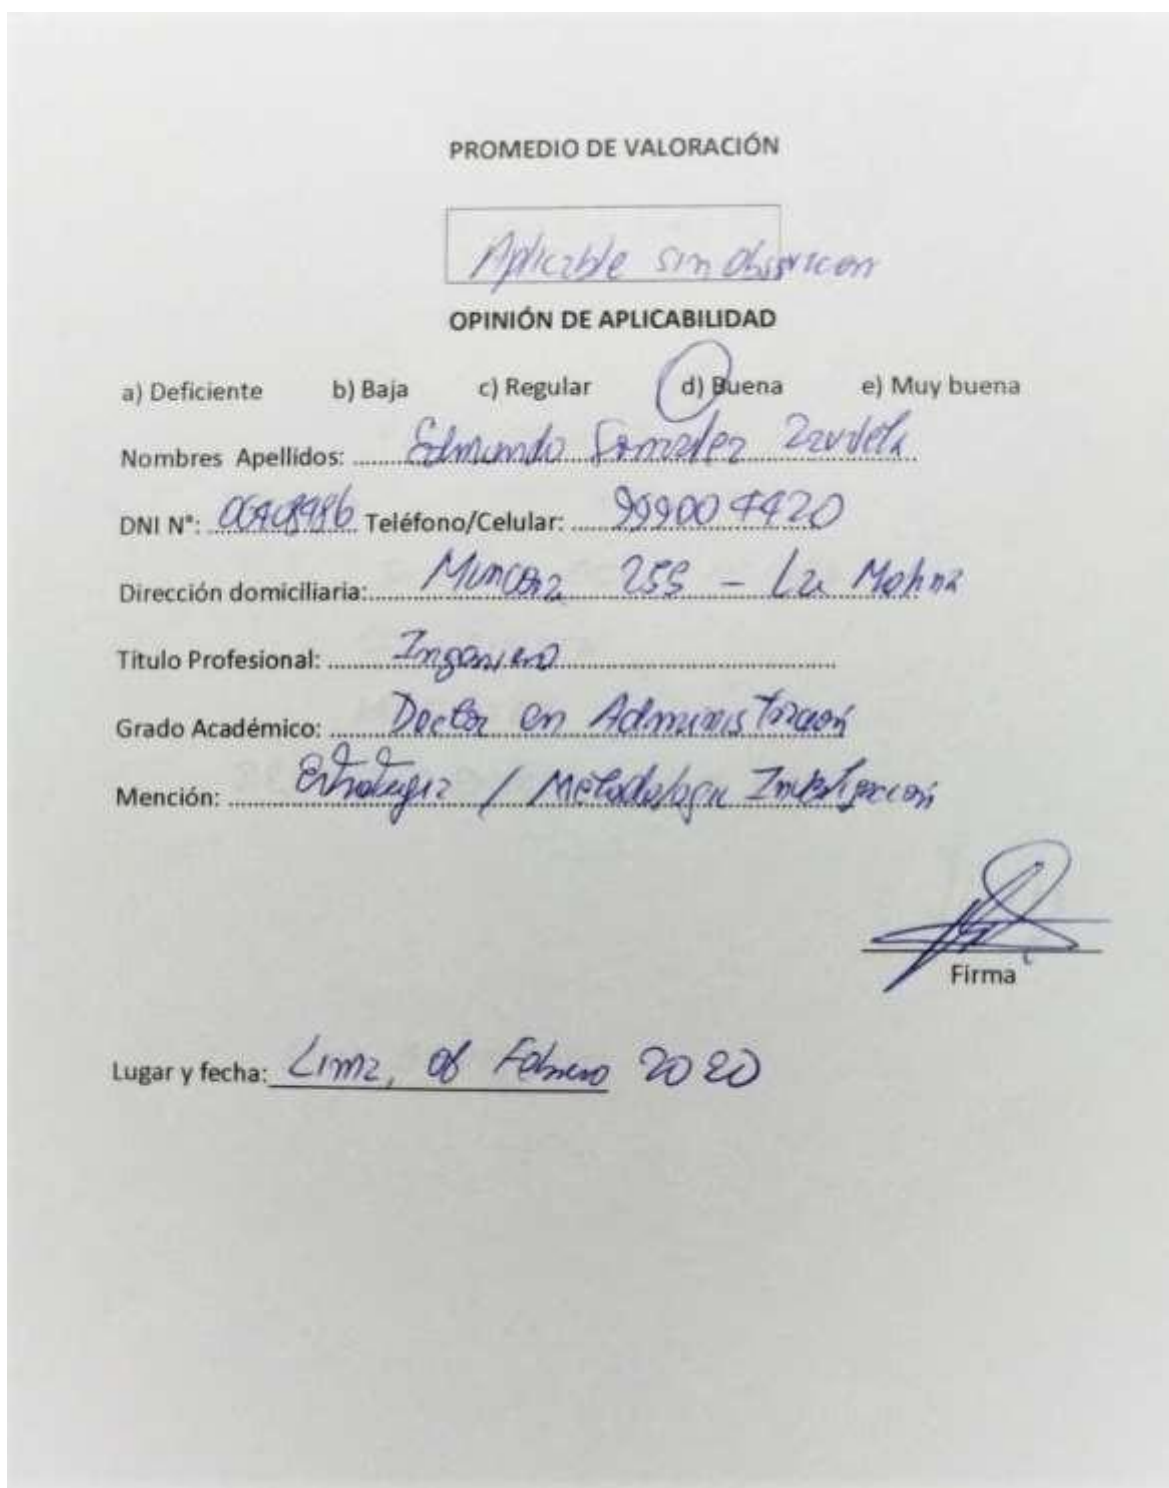 PROMEDIO DE VALORACIÓN
Aplicable sin
OPINIÓN DE APLICABILIDAD
a) Deficiente b) Baja c) Regular d) Buena e) Muy buena
Nombres Apellidos: Edmundo González
DNI N°: Teléfono/Celular:
Dirección domiciliaria: 255 - La Molina
Titulo Profesional: Ingeniero
Grado Académico: Doctor en Administración
Mención: Estrategia / Metodología Investigación
Firma
Lugar y fecha: Lima, 06 Febrero 2020